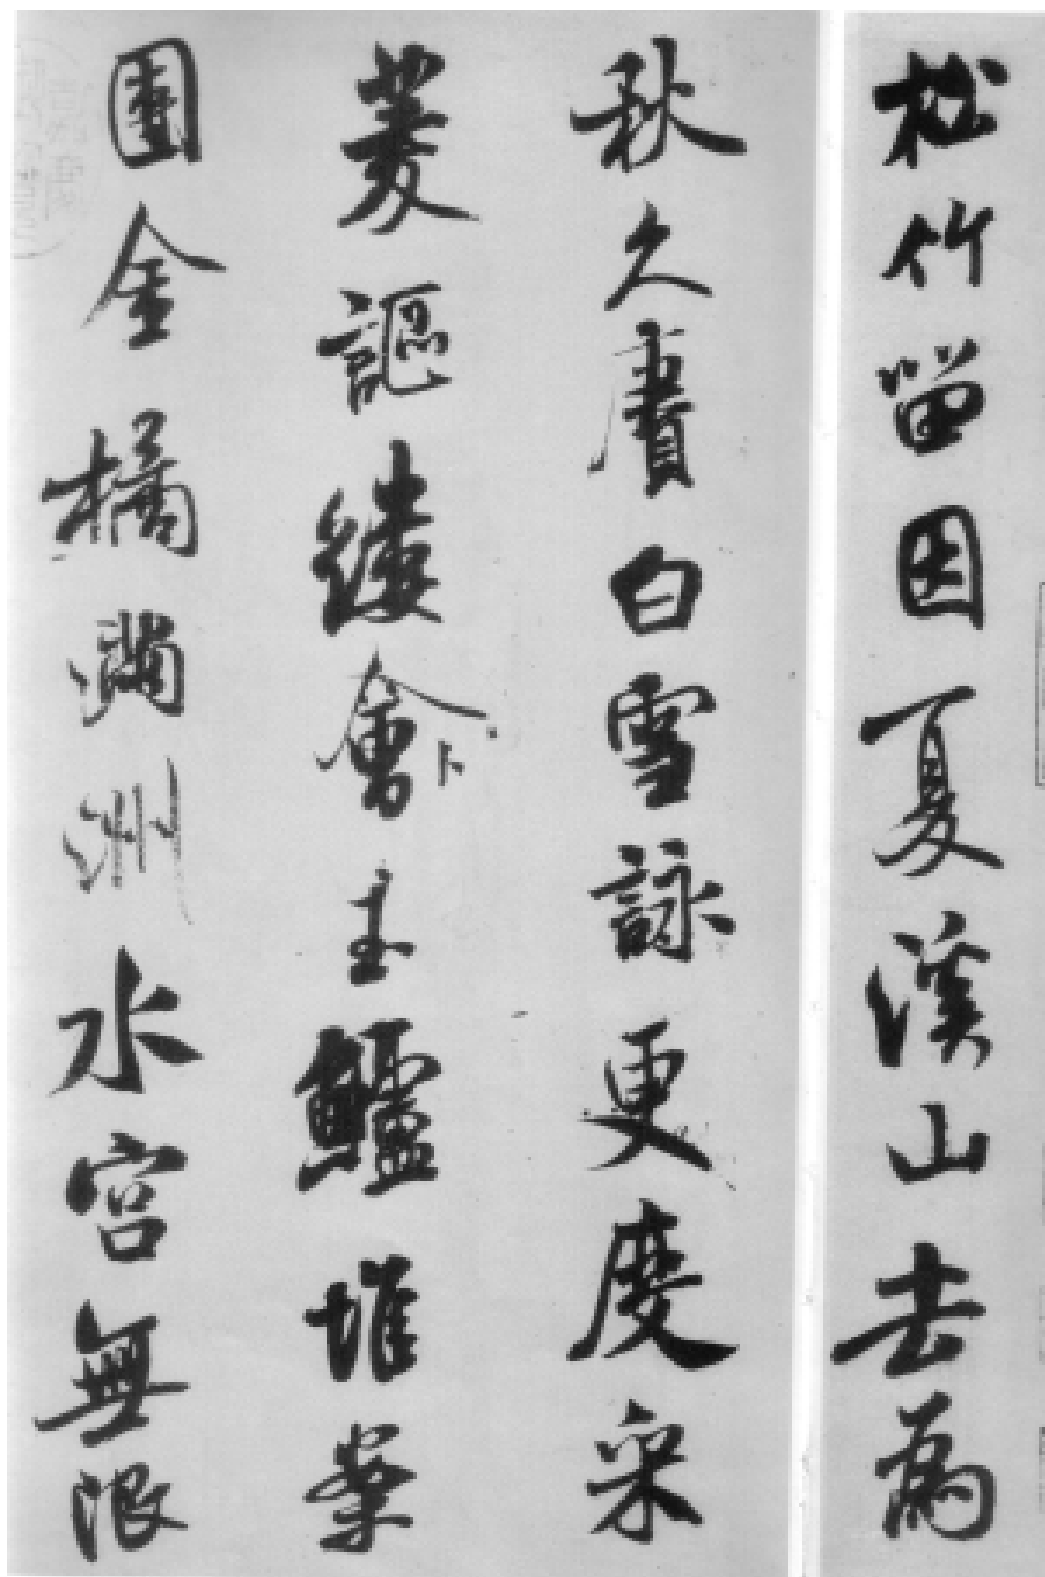 松竹留因夏溪山去為
秋久賡白雪詠更度采
菱謳縷會玉鱸堆案
團金橘滿洲水宮無限